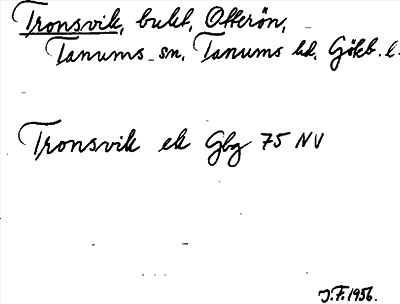 Tronsvik, bukt, Otterön,
Tanums sn, Tanums hd, Göteb. l.
Tronsvik ek Gbg 75 NV
J.F. 1956.